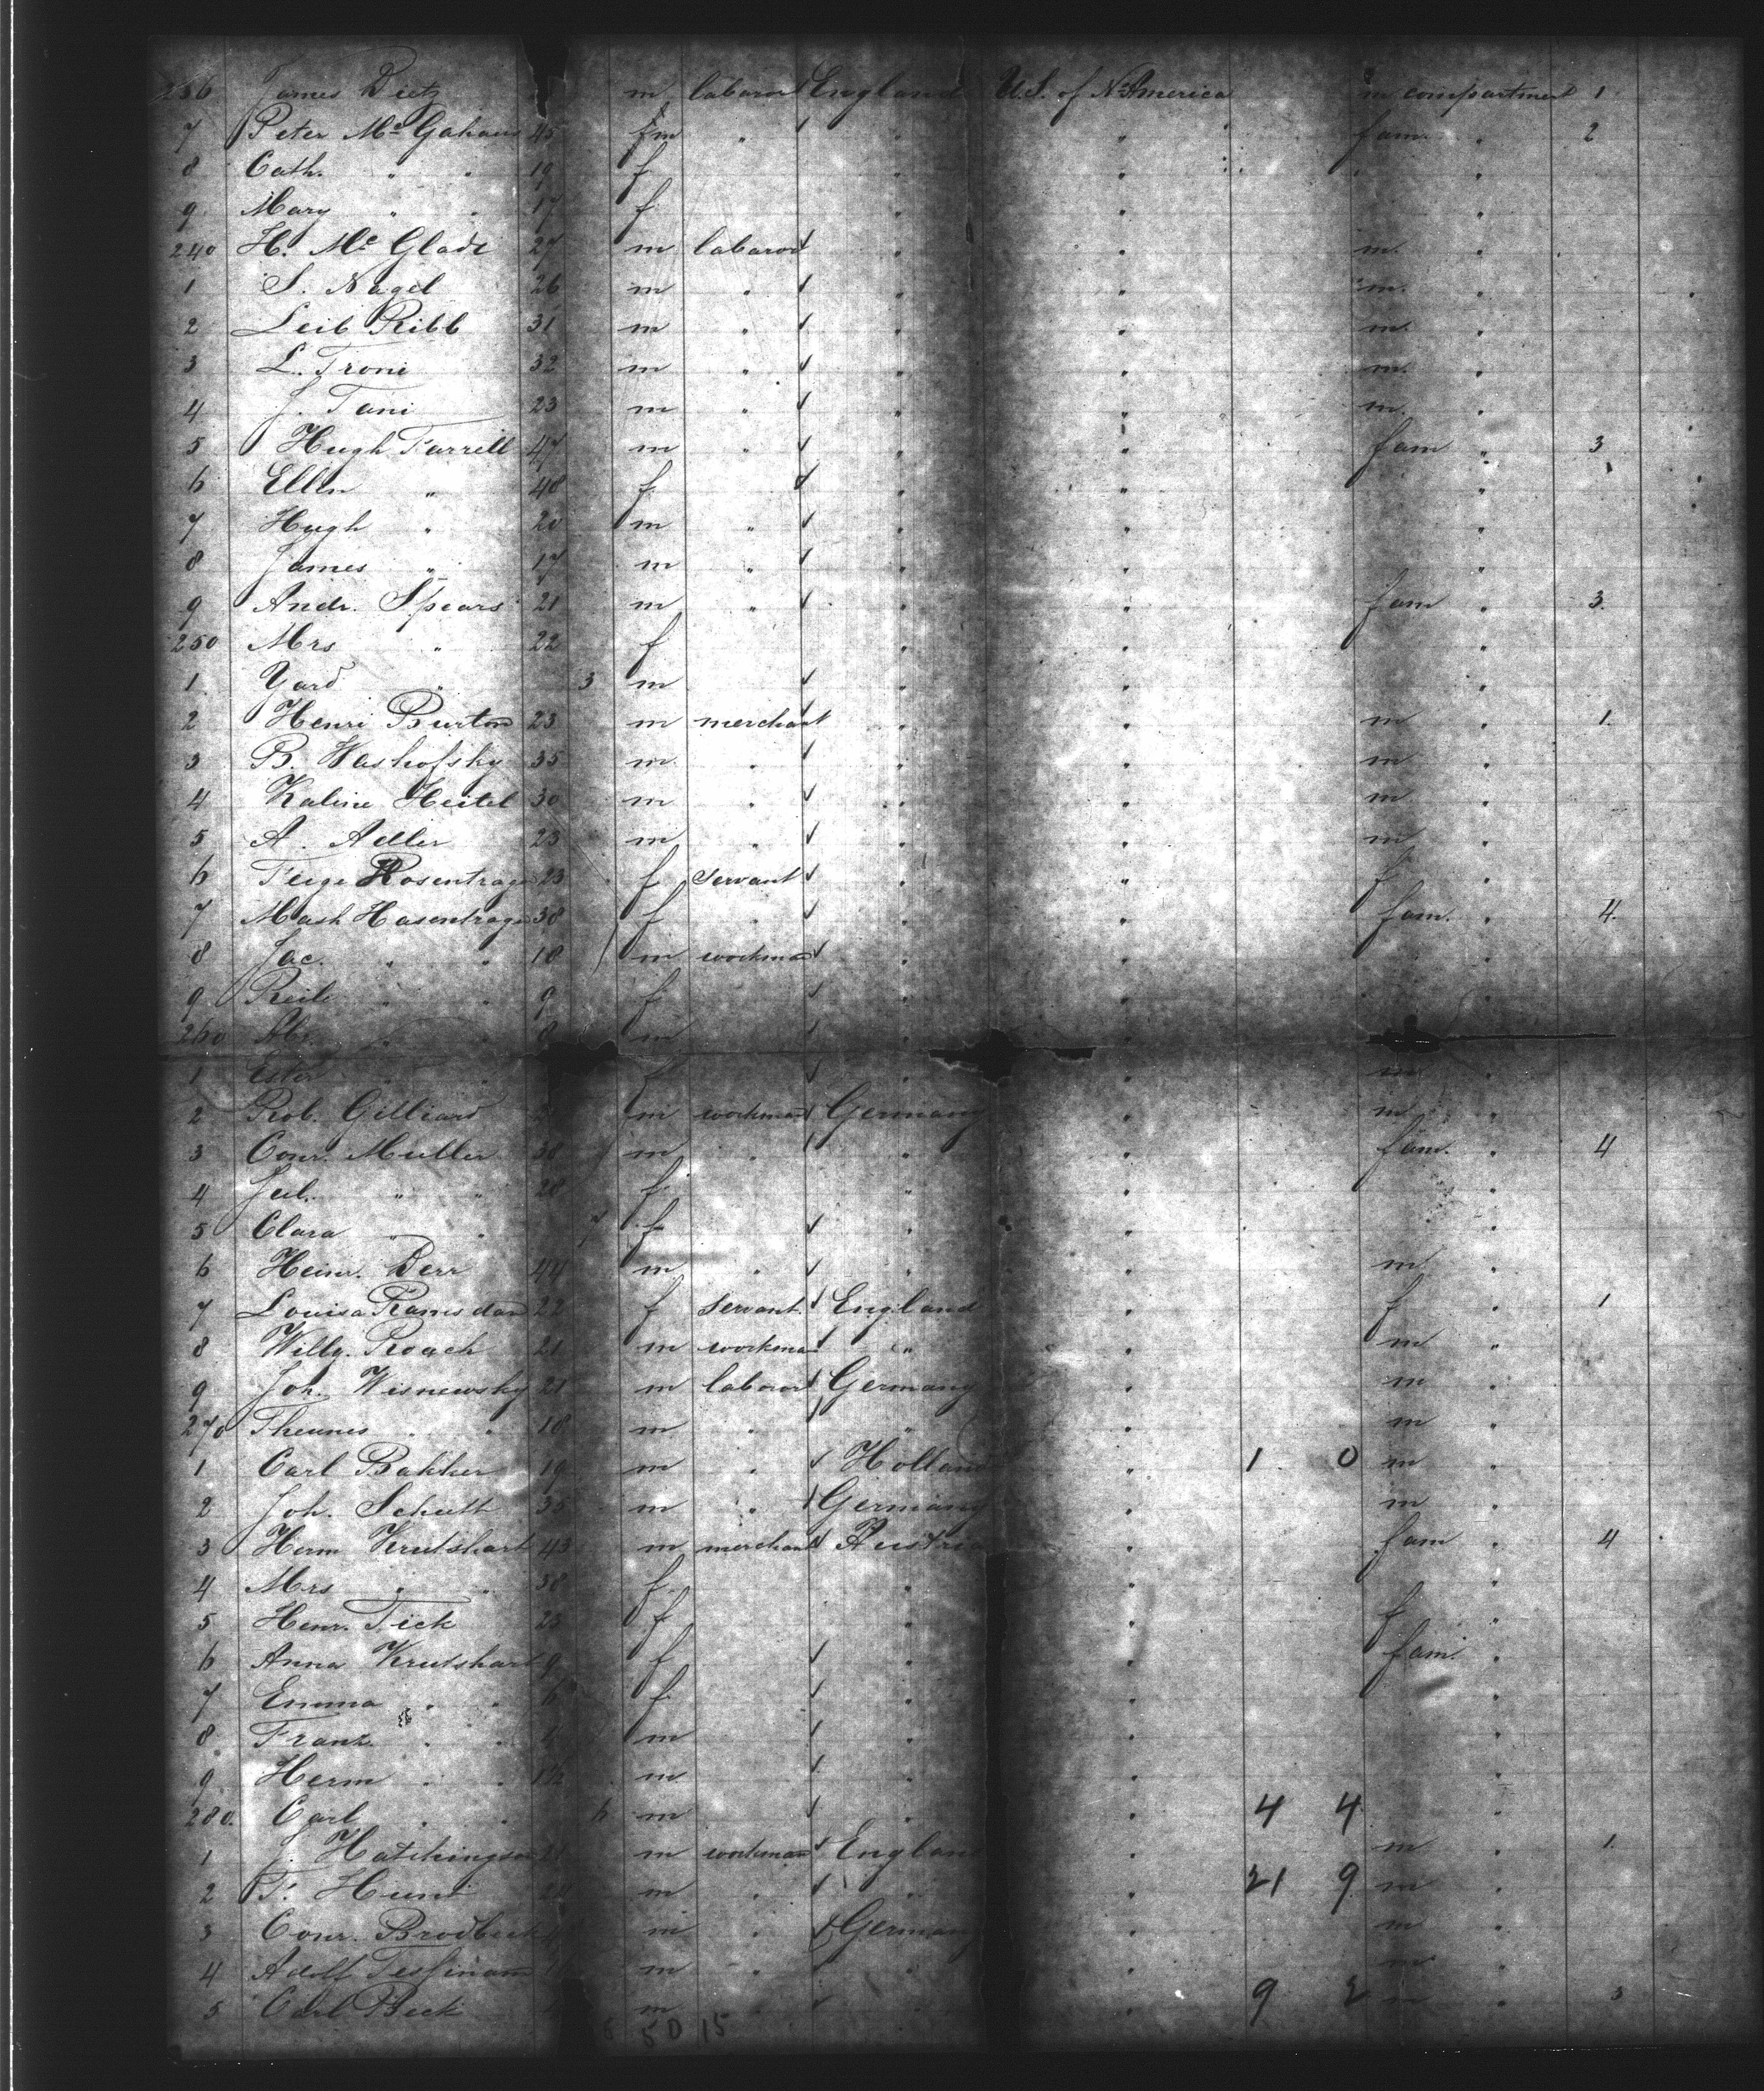 236 James Dietz m laboror England U.S. of N. America m compartment 1
7 Peter Mc Gahan 45 m " " " fam. " 2
8 Cath. " " 19 f " " "
9 Mary " " 17 f " " "
240 H. Mc Glade 27 m laboror " " m. "
1 S. Nagel 26 m " " " m. "
2 Leib Ribb 31 m " " " m. "
3 L. Troni 32 m " " " m. "
4 J. Tani 23 m " " " m. "
5 Hugh Farrell 47 m " " " fam " 3
6 Ellen " 48 f " " "
7 Hugh " 20 m " " " "
8 James " 17 m " " " "
9 Andr. Spears 21 m " " " fam " 3.
250 Mrs " 22 f " " "
1 Yard " 3 m " " "
2 Henri Burton 23 m merchant " " m " 1.
3 B. Washofsky 35 m " " " m "
4 Kaline Heitel 30 m " " " m "
5 A. Adler 23 m " " " m "
6 Feige Rosentrage 23 f servant " " f "
7 Mash Hasentrage 38 f " " " fam. " 4.
8 Jac. " " 10 m workman " " "
9 Reile " " 9 f " " "
260 Abr. " " 8 m " " "
1 Ester " " f " " m "
2 Rob. Gilliard m workman Germany " m "
3 Conr. Muller 30 m " " " fam. " 4
4 Jul. " " 28 f " " "
5 Clara " " f " " "
6 Heinr. Derr 44 m " " " m "
7 Louisa Ramsdan 22 f servant England " f " 1
8 Willy. Roach 21 m workman " " m "
9 Joh. Wisnewsky 21 m laboror Germany " m "
270 Theunes " " 18 m " " " m "
1 Carl Bakker 19 m " Holland " 1 0 m "
2 Joh. Schutt 35 m " Germany " m "
3 Herm Krutshart 43 m merchant Austria " fam " 4
4 Mrs " " 38 f " " "
5 Henr. Tick 23 f " " f "
6 Anna Krutshart 9 f " " fam. "
7 Emma " " 6 f " " "
8 Franz " " 4 m " " "
9 Herm " " m " " "
280. Carl " " 6 m " " 4 4 "
1 J. Hatchingson 21 m workman England " m " 1.
2 T. Hunt m " " " 21 9 m "
3 Conr. Brodbeck m " Germany " m "
4 Adolf m " " " m "
5 Carl Beck m " " " 9 2 m " 3
50 15